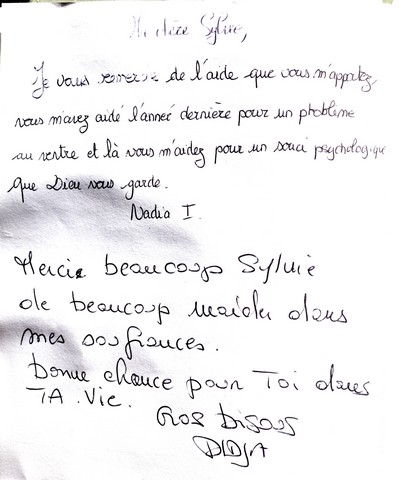 Ma chère Sylvie,
Je vous remercie de l'aide que vous m'apportez,
vous m'avez aidé l'anneé dernière pour un problème
au ventre et là vous m'aidez pour un souci psychologique
que Dieu vous garde.
Nadia I.
Mercie beaucoup Sylvie
de beaucoup maider dans
mes soufrances.
bonne chance pour Toi dans
TA. Vie.
Gros bisous